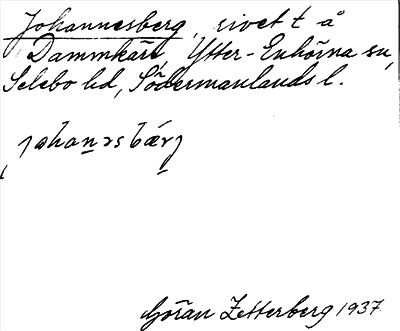 Johannesberg, rivet t å
Dammkärr, Ytter-Enhörna sn,
Selebo hd, Södermanlands l.
johan̲əsbærj
Göran Zetterberg 1937